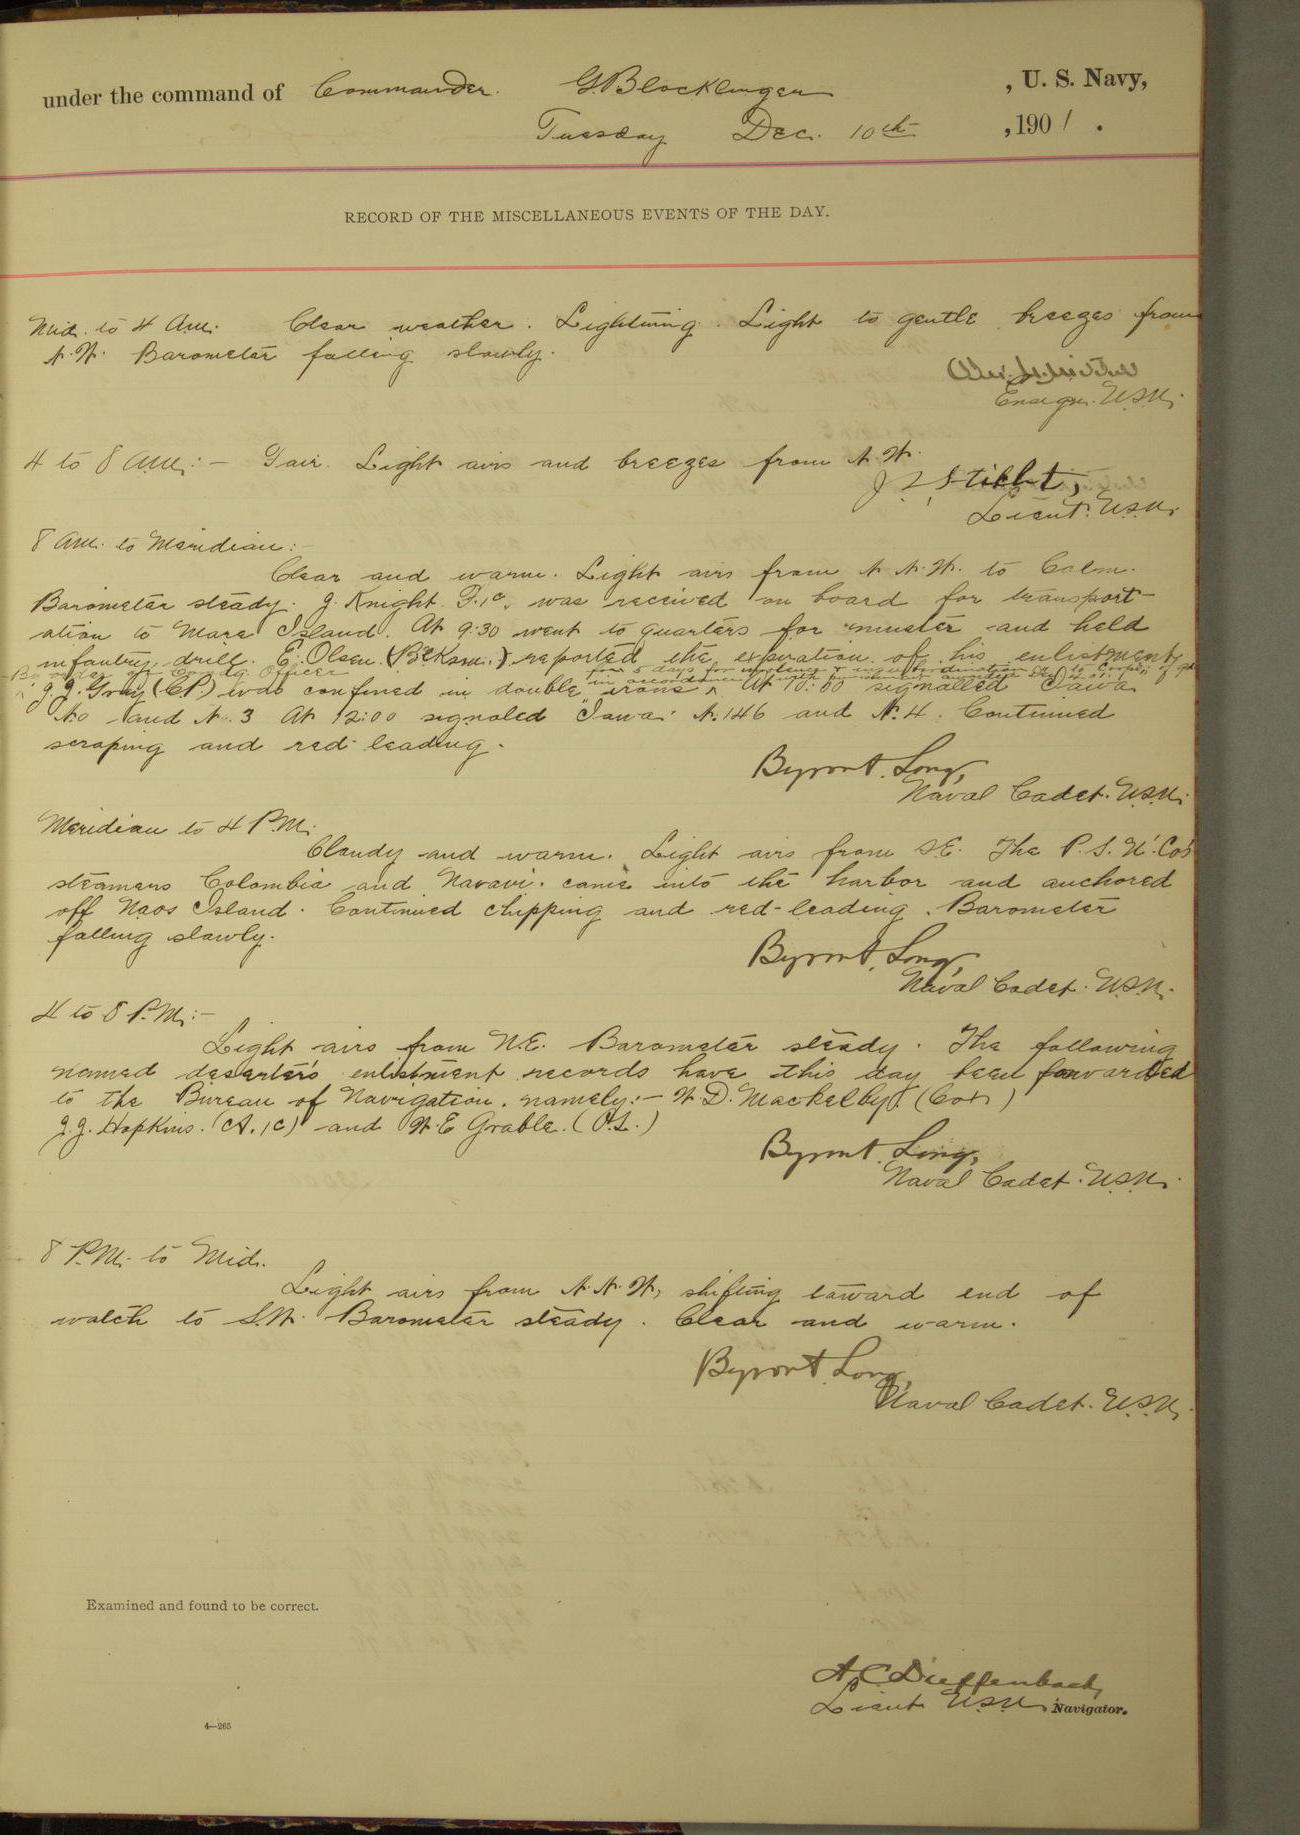 under the command of Commander. G. Blocklinger , U. S. Navy,
Tuesday Dec. 10th , 1901 .
RECORD OF THE MISCELLANEOUS EVENTS OF THE DAY.
Mid. to 4 A.M. Clear weather. Lightning. Light to gentle breezes from
N.W. Barometer falling slowly.
Ensign. U.S.N.
4 to 8 A.M.:- Fair. Light airs and breezes from N.W.
Lieut. U.S.N.
8 A.M. to Meridian:-
Clear and warm. Light airs from N.N.W. to Calm.
Barometer steady. J. Knight F.1c. was received on board for transport-
ation to Mare Island. At 9:30 went to quarters for muster and held
infantry drill. E. Olsen. (B'Ksm.) reported the expiration of his enlistment.
By order of Comdg Officer
J.J. Gray (CP) was confined in double irons At 10:00 signalled Iowa
No 1 and No. 3 At 12:00 signaled "Iowa" N.146 and N.4. Continued
scraping and red-leading.
Byron A. Long,
Naval Cadet. U.S.N.
Meridian to 4 P.M.
Cloudy and warm. Light airs from S.E. The P.S.N. Co's
steamers Colombia and came into the harbor and anchored
off Naos Island. Continued chipping and red-leading. Barometer
falling slowly.
Byron A. Long,
Naval Cadet. U.S.N.
4 to 8 P.M.:-
Light airs from N.E. Barometer steady. The following
named deserters enlistment records have this day been forwarded
to the Bureau of Navigation. namely:- W.D. Mackelby. (Cox)
J.J. Hopkins. (A.1C) and W.E Grable. (O.S.)
Byron A. Long,
Naval Cadet. U.S.N.
8 P.M. to Mid.
Light airs from N.N.W, shifting toward end of
watch to S.W. Barometer steady. Clear and warm.
Byron A. Long,
Naval Cadet. U.S.N.
Examined and found to be correct.
A.C. Dieffenbach,
Lieut U.S.N. Navigator.
4—265